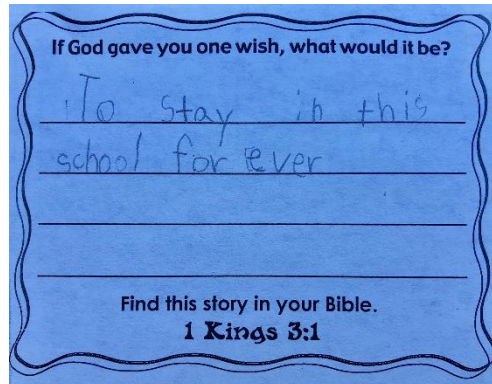 If God gave you one wish, what would it be?
To stay in this
school for ever
Find this story in your Bible.
1 Kings 3:1